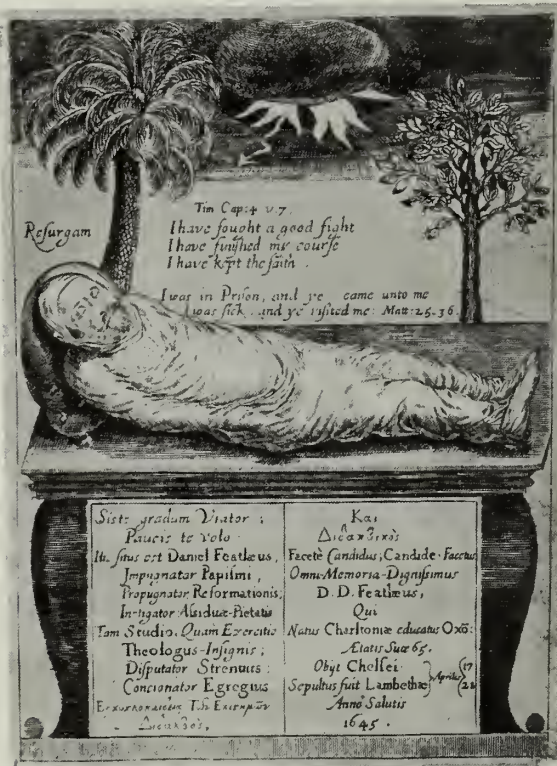 Resurgam
Tim Cap: 4 v. 7.
I have fought a good fight
I have finished my course
I have kept the faith.
I was in Prison, and ye came unto me
I was sick and ye visited me: Matt: 25. 36.
Siste gradum Viator;
Paucis te volo
Hic situs est Daniel Featlæus,
Impugnator Papismi,
Propugnator Reformationis,
Instigator Assiduæ Pietatis
Tam Studio, Quam Exercitio
Theologus Insignis;
Disputator Strenuus:
Concionator Egregius
Και
Facetè Candidus; Candide Facetus
Omni-Memoria-Dignissimus
D. D. Featlæus,
Qui
Natus Charltoniæ educatus Oxõ:
Ætatis Suæ 65.
Obijt Chelsei 17
Sepultus fuit Lambethæ Aprilis
Anno Salutis
1645.